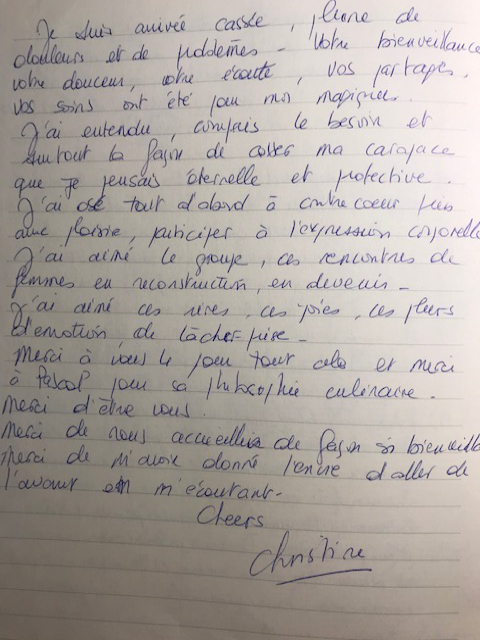 Je suis arrivée cassée, pleine de
douleurs et de problèmes - Votre bienveillance
votre douceur, votre écoute, vos partages,
vos soins ont été pour moi magiques.
J'ai entendu, compris le besoin et
surtout la façon de casser ma carapace
que je pensais éternelle et protective.
J'ai osé tout d'abord à contre coeur puis
avec plaisir, participer à l'expression corporelle
J'ai aimé le groupe, ces rencontres de
femmes en reconstruction, en devenir -
J'ai aimé ces rires, ces joies, ces pleurs
d'émotion, de lâcher prise -
Merci à vous pour tout cela et merci
à Pascal pour sa philosophie culinaire.
Merci d'être vous.
Merci de nous accueillir de façon si bienveilla
Merci de m'avoir donné l'envie d'aller de
l'avant en m'écoutant -
Cheers
Christine